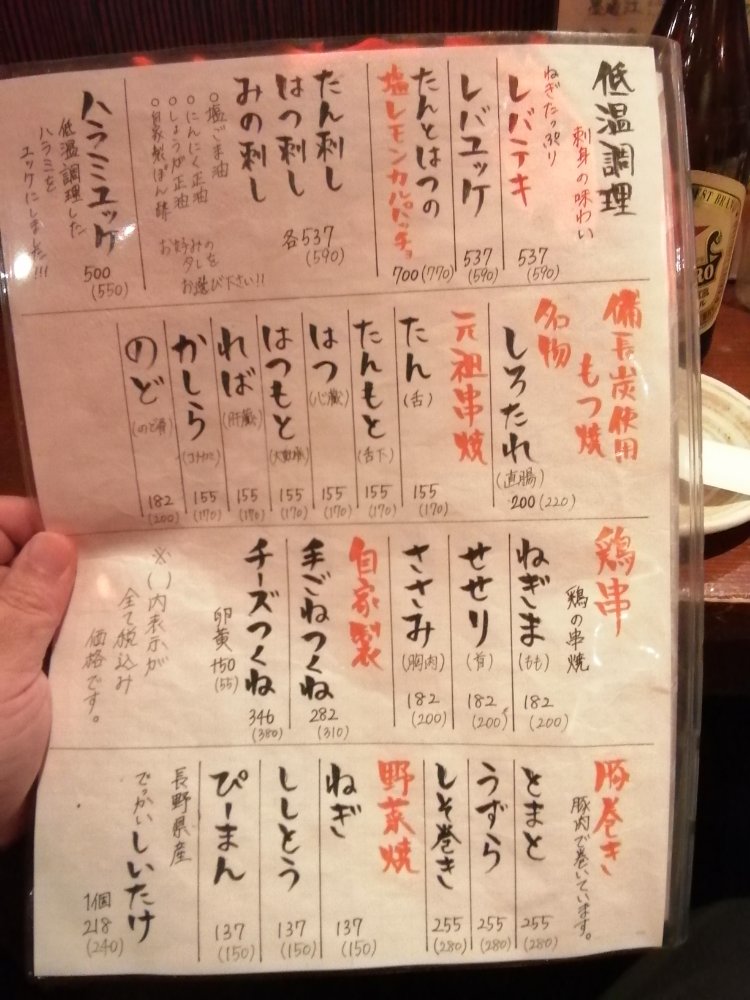 低温調理
刺身の味わい
ねぎたっぷり
レバテキ
537
(590)
レバユッケ
537
(590)
たんとはつの
塩レモンカルパッチョ
700(770)
たん刺し
はつ刺し
みの刺し
各537
(590)
○塩ごま油
○にんにく正油
○しょうが正油
○自家製ぽん酢
お好みの
タレを
お選び下さい!!
ハラミユッケ
500
(550)
低温調理した
ハラミを
ユッケにしました!!!
備長炭使用
もつ焼
名物
しろたれ
(直腸)
200(220)
元祖串焼
たん
(舌)
155
(170)
たんもと
(舌下)
155
(170)
はつ
(心臓)
155
(170)
はつもと
(大動脈)
155
(170)
ればー
(肝臓)
155
(170)
かしら
(コメカミ)
155
(170)
のど
(のど骨)
182
(200)
鶏串
鶏の串焼
ねぎま
(もも)
182
(200)
せせり
(首)
182
(200)
ささみ
(胸肉)
182
(200)
自家製
手ごねつくね
282
(310)
チーズつくね
346
(380)
卵黄
+50
(55)
※( )内表示が
全て税込み
価格です。
豚巻き
豚肉で巻いています。
とまと
255
(280)
うずら
255
(280)
しそ巻き
255
(280)
野菜焼
ねぎ
137
(150)
ししとう
137
(150)
ぴーまん
137
(150)
長野県産
でっかいしいたけ
1個
218
(240)